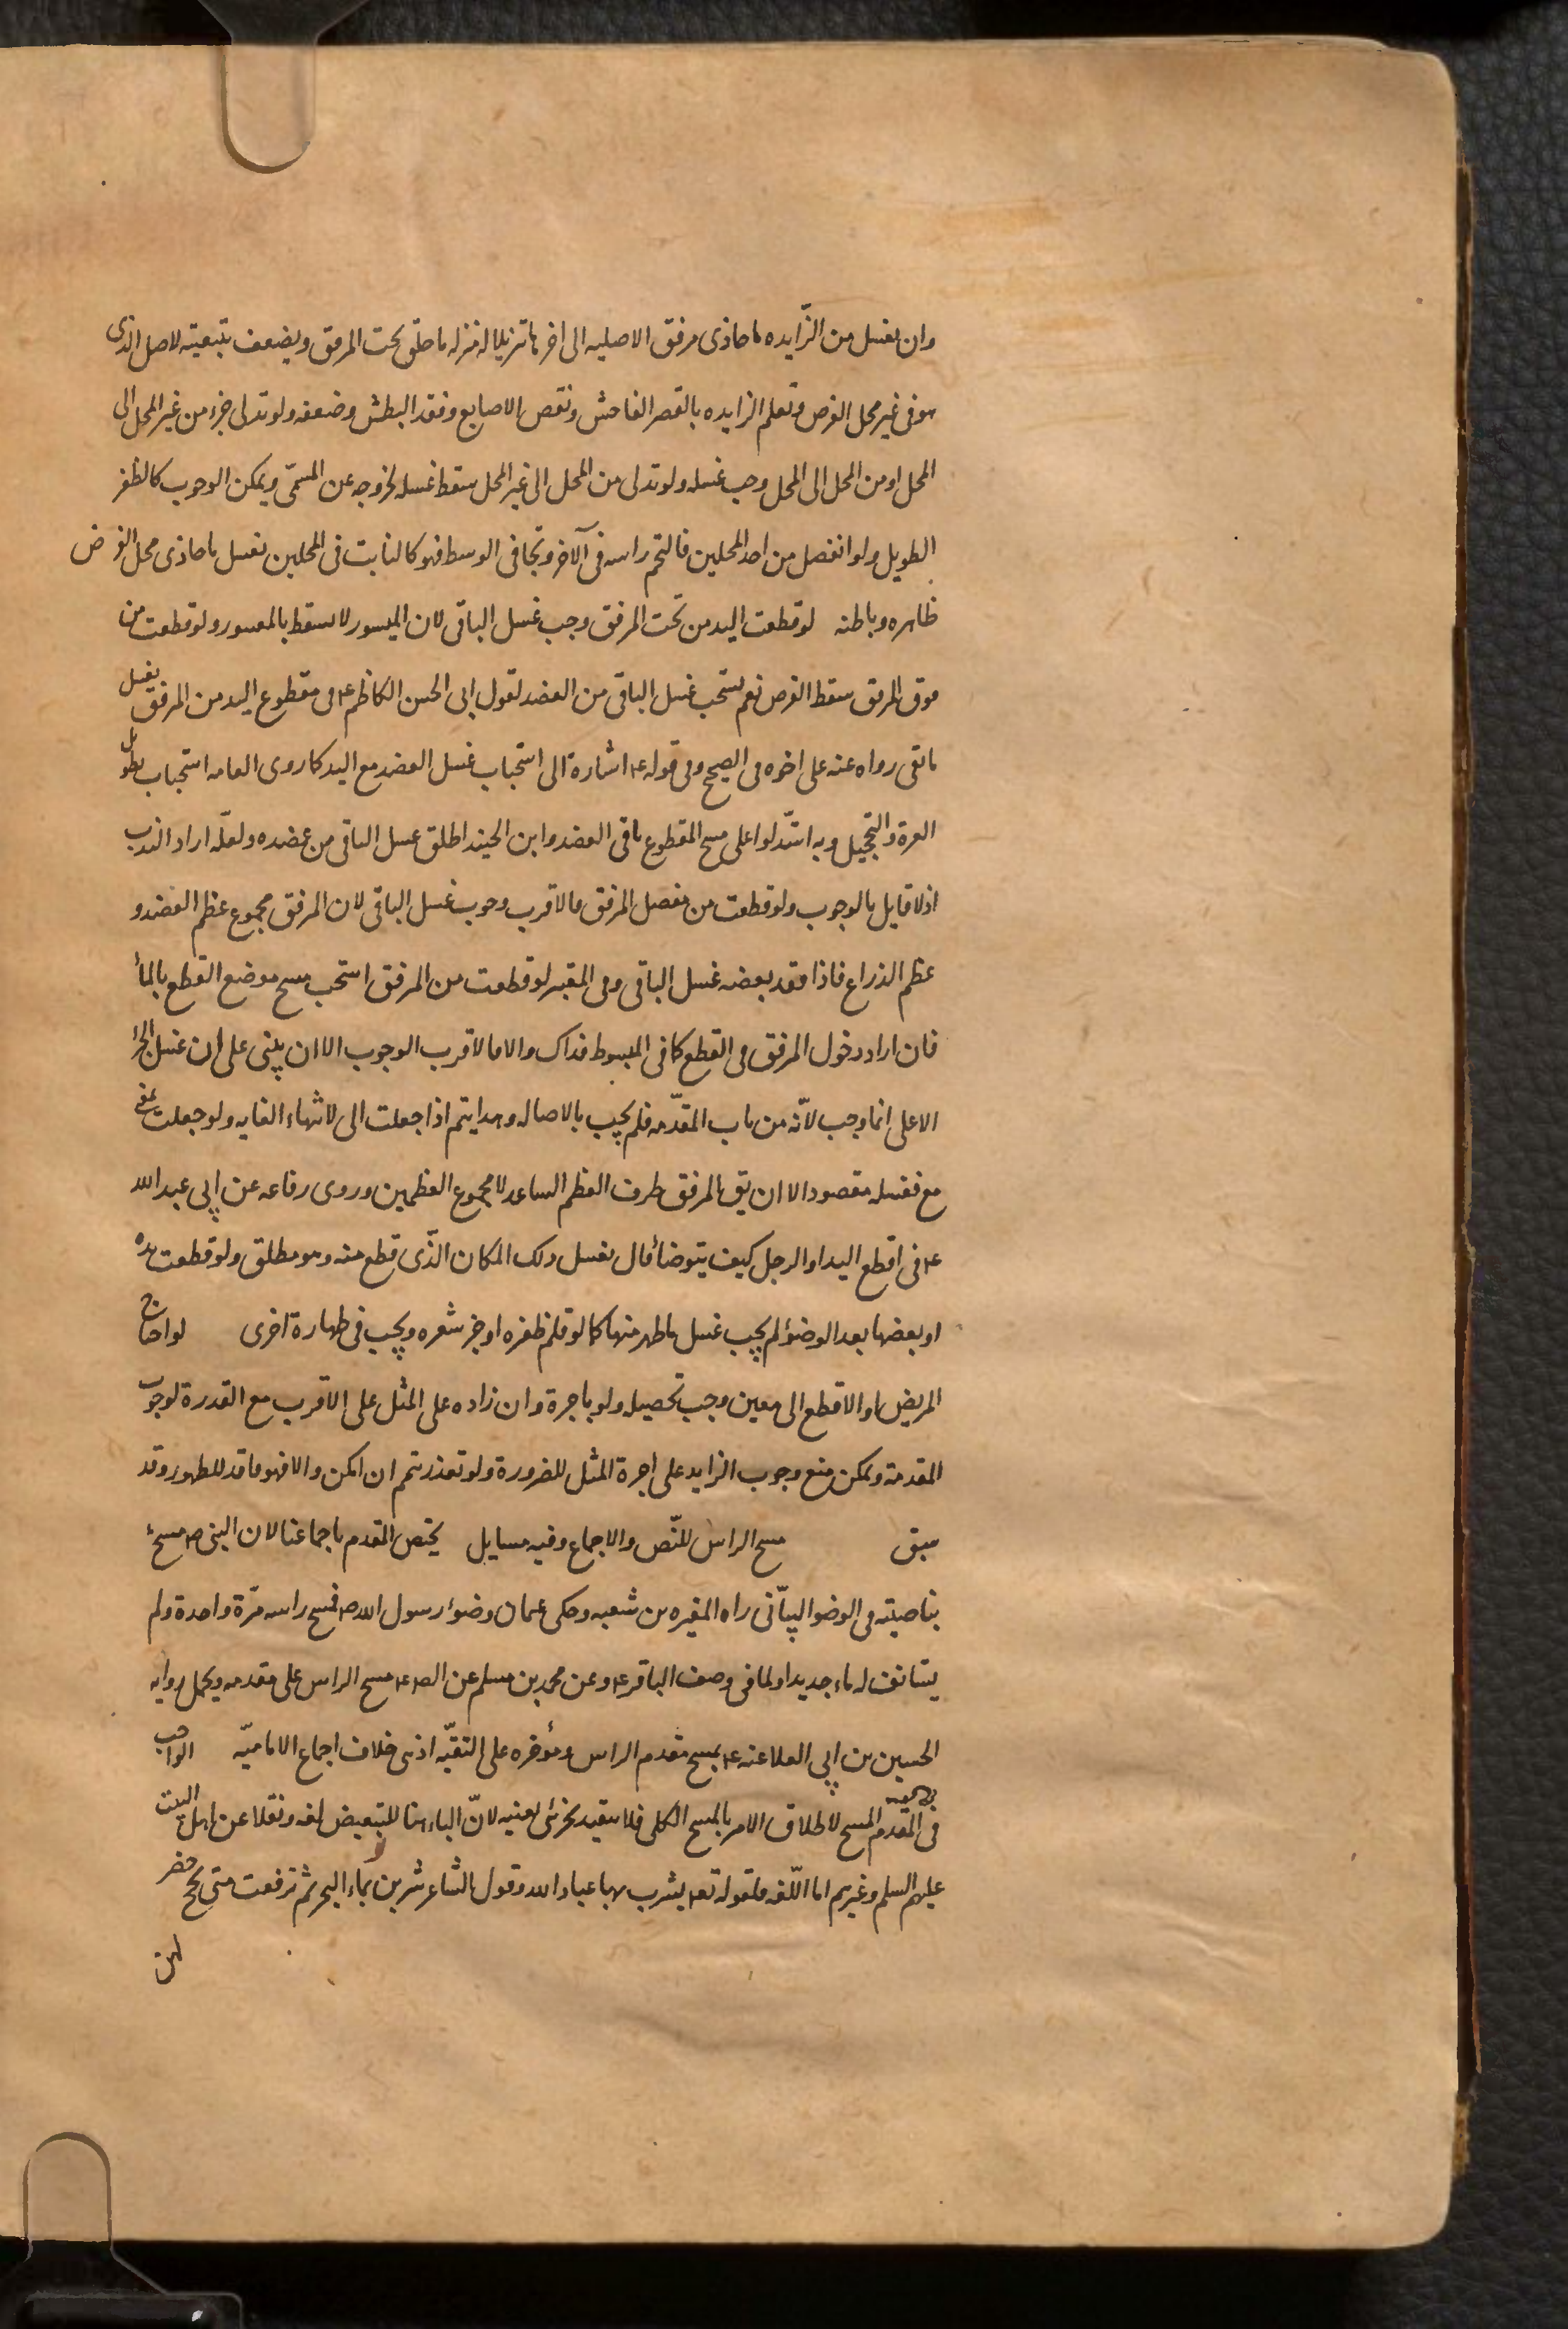 وان يغسل من الزّايده ما حاذى مرفق الاصليه الى اخرها تنزيلا له منزله ما خلق تحت المرفق ويضعف بتبعيته لاصل الذى
هو فى غير محل الفرض وتعلم الزايده بالقصر الفاحش ونقص الاصابع وفقد البطش وضعفه ولو تدلى جزء من غير المحل الى
المحل او من المحل الى المحل وجب غسله ولو تدلى من المحل الى غير المحل سقط غسله لخروجه عن المسمّى ويمكن الوجوب كالظفر
الطويل ولو انفصل من احد المحلين فالتحم راسه فى الآخر وتجافى الوسط فهو كالنابت فى المحلين يغسل ما حاذى محل الفرض
ظاهره وباطنه لو قطعت اليد من تحت المرفق وجب غسل الباقى لان الميسور لا يسقط بالمعسور ولو قطعت من
فوق المرفق سقط الفرض نعم يستحب غسل الباقى من العضد لقول ابى الحسن الكاظم ع فى مقطوع اليد من المرفق يغسل
ما بقى رواه عنه على اخوه فى الصحيح وفى قوله ع اشارة الى استحباب غسل العضد مع اليد كما روى العامه استحباب تطويل
الغرة والتحجيل وبه استدلوا على مسح المقطوع باقى العضد وابن الجنيد اطلق غسل الباقى من عضده ولعلّه اراد الندب
اذ لا قايل بالوجوب ولو قطعت من مفصل المرفق فالاقرب وجوب غسل الباقى لان المرفق مجموع عظم العضد و
عظم الذراع فاذا فقد بعضه غسل الباقى وفى المعتبر لو قطعت من المرفق استحب مسح موضع القطع بالمأ
فان اراد دخول المرفق فى القطع كما فى المبسوط فذاك والا فالاقرب الوجوب الا ان يبنى على ان غسل الجزا
الاعلى انما وجب لانّه من باب المقدّمه فلم يجب بالاصاله وهذا يتم اذا جعلت الى لانتهاء الغايه ولو جعلت بمعنى
مع فغسله مقصود الا ان يق المرفق طرف العظم الساعد لا مجموع العظمين وروى رفاعه عن ابى عبد الله
ع فى اقطع اليد او الرجل كيف يتوضأ قال يغسل ذلك المكان الذّى قطع منه وهو مطلق ولو قطعت يده
او بعضها بعد الوضؤ لم يجب غسل ما ظهر منها كما لو قلم ظفره او جز شعره ويجب فى طهارة اخرى لو احتاج
المريض او الاقطع الى معين وجب تحصيله ولو باجرة وان زاده على المثل على الاقرب مع القدرة لوجوب
المقدمة ويمكن منع وجوب الزايد على اجرة المثل للضرورة ولو تعذر تيمم ان امكن والا فهو فاقد للطهور وقد
سبق مسح الراس للنّص والاجماع وفيه مسايل يختص المقدم باجماعنا لان النبى ص مسح
بناصيته فى الوضو البيّانى راه المغيره بن شعبه وحكى عثمان وضوء رسول الله ص فمسح راسه مرّة واحدة ولم
يستانف له ماء جديدا ولما فى وصف الباقر ع وعن محمد بن مسلم عن الص ع مسح الراس على مقدمه ويحمل روايه
الحسين بن ابى العلا عنه ع بمسح مقدم الراس ومؤخره على التقيّه اذ هى خلاف اجماع الاماميّه الواجب
فى المقدم المسح لاطلاق الامر بالمسح الكلى فلا يتقيد بجزئى بعينه لانّ الباء هنا للتبعيض لغه ونقلا عن اهل البيت
عليهم السلم وغيرهم اما اللّغه فلقوله تع يشرب بها عباد الله وقول الشاعر شربن بماء البحر ثم ترفعت متى لجج خضر
لهن